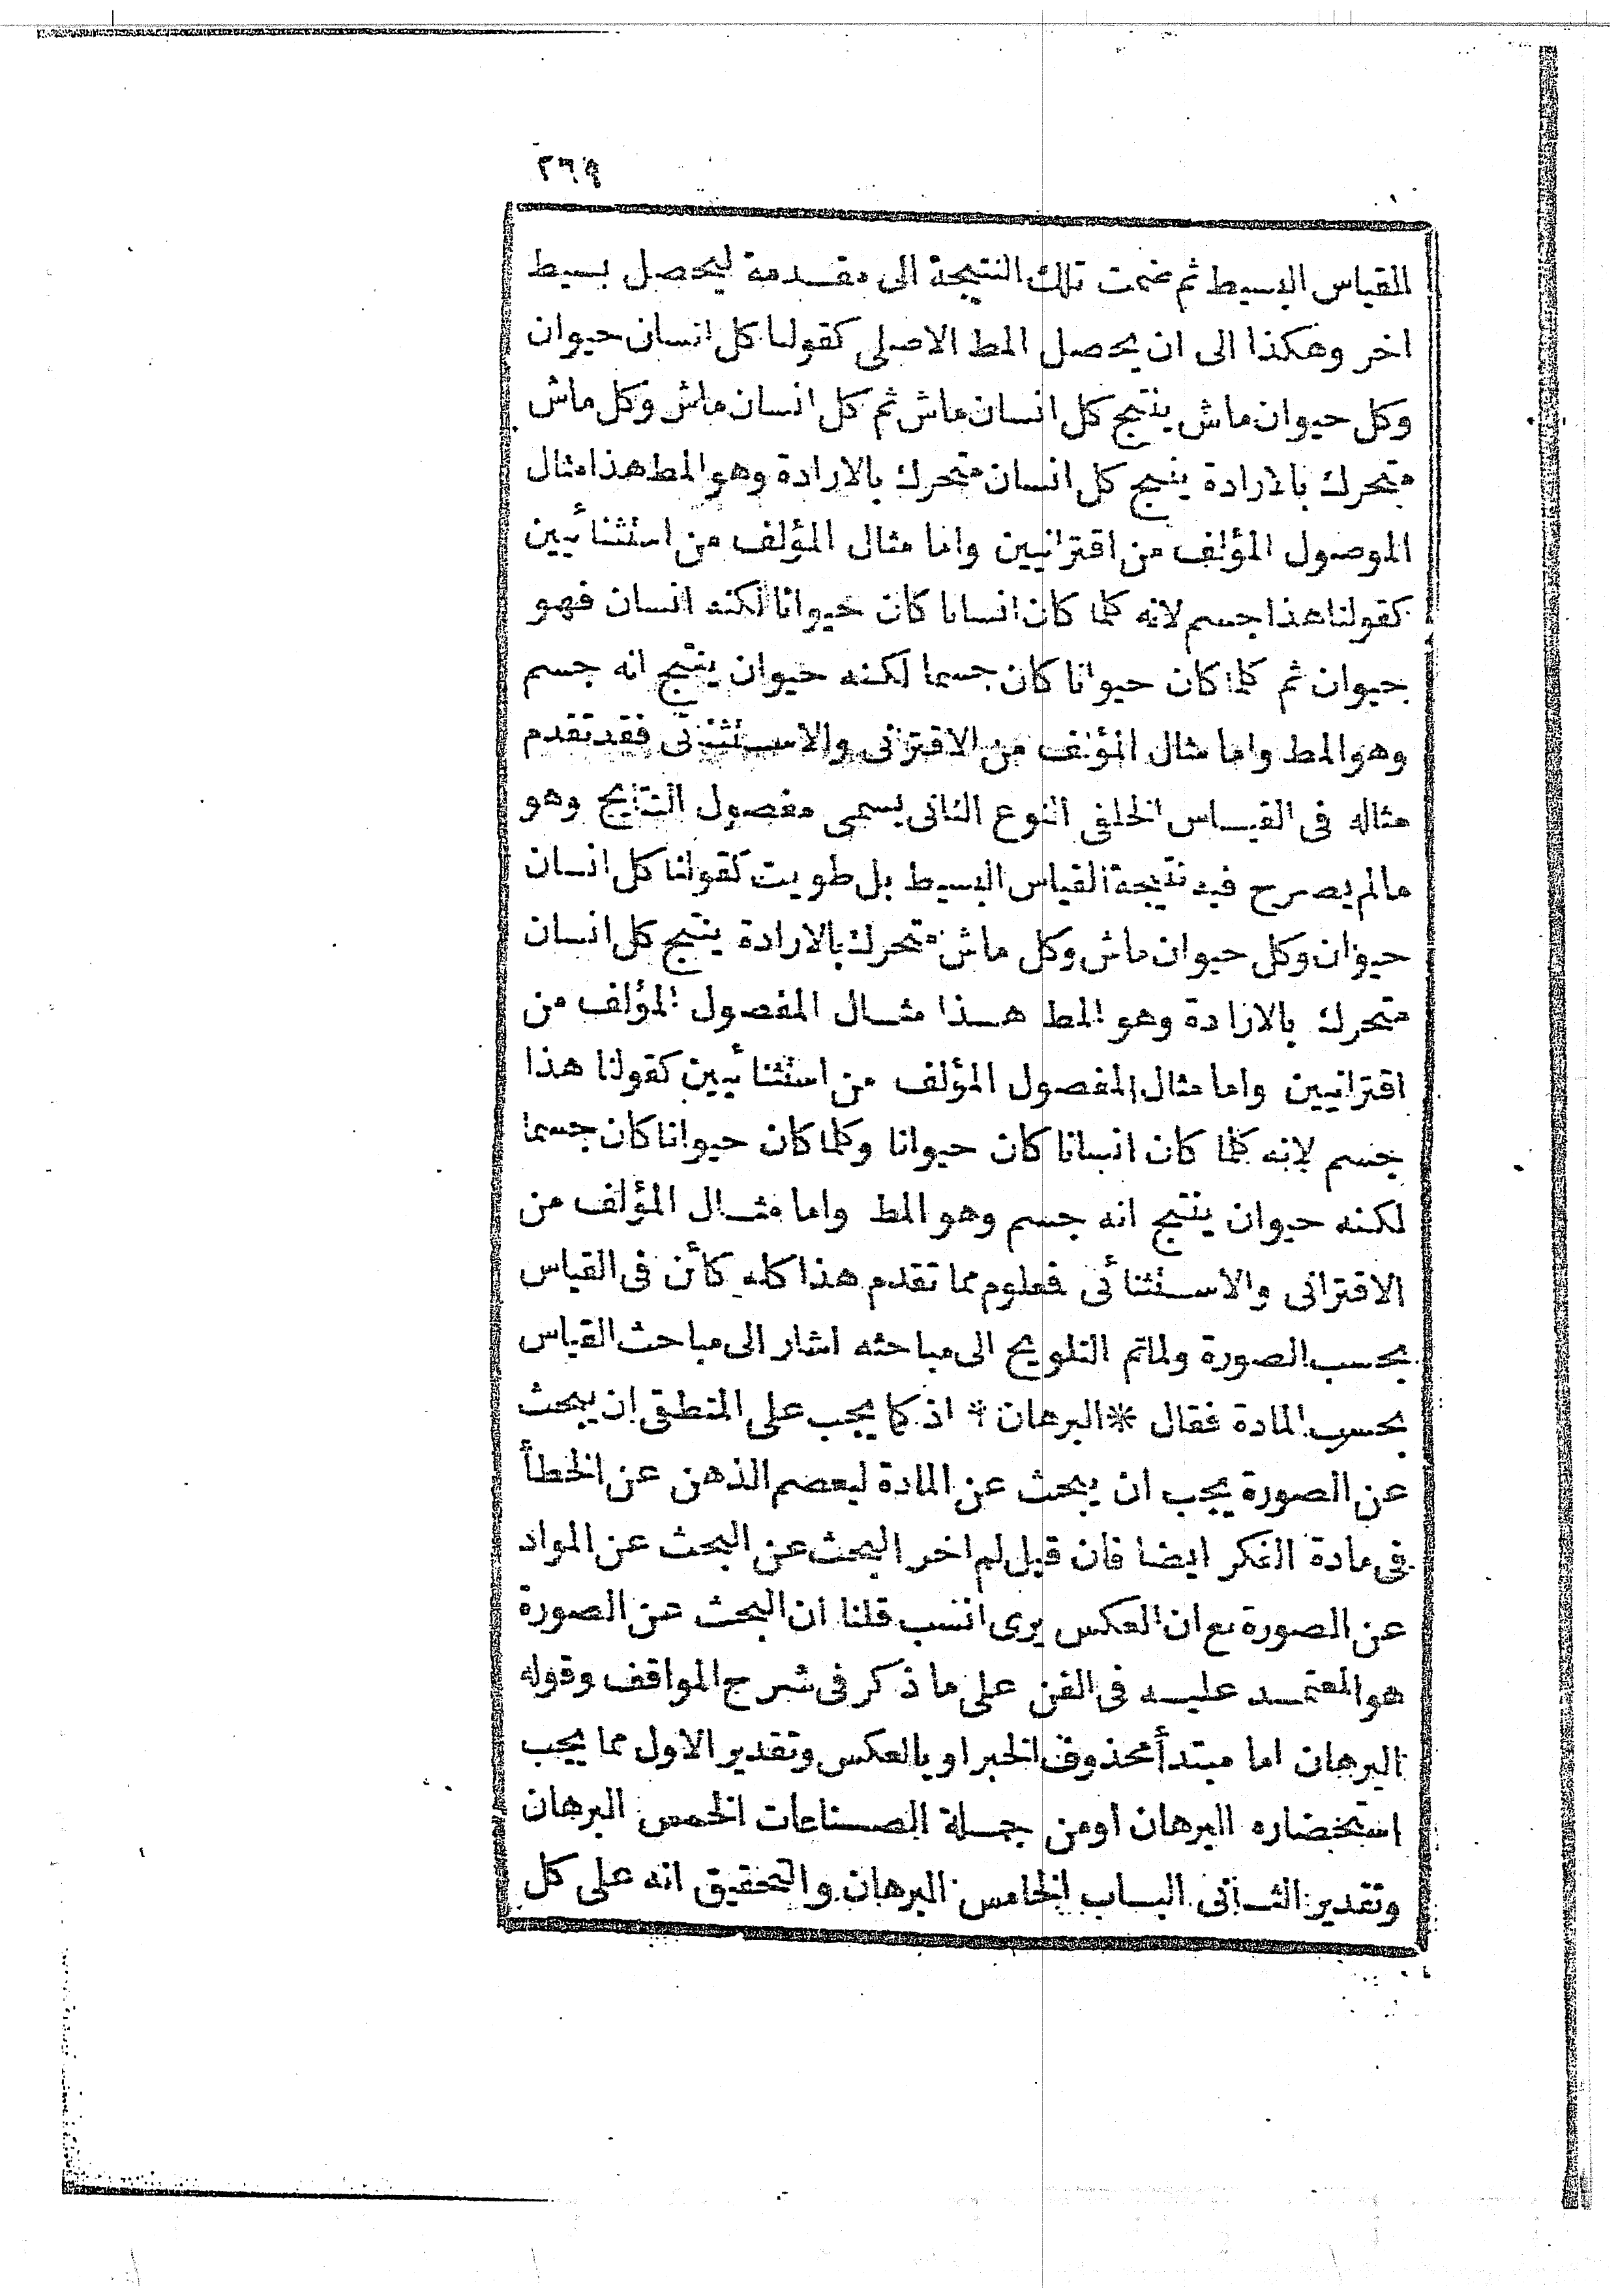 ٢٦٩
القياس البسيط ثم ضمت تلك النتيجة الى مقدمة ليحصل بسيط
اخر وهكذا الى ان يحصل المط الاصلى كقولنا كل انسان حيوان
وكل حيوان ماش ينتج كل انسان ماش ثم كل انسان ماش وكل ماش
متحرك بالارادة ينتج كل انسان متحرك بالارادة وهو المط هذا مثال
الموصول المؤلف من اقترانيين واما مثال المؤلف من استثنائيين
كقولنا هذا جسم لانه كلما كان انسانا كان حيوانا لكنه انسان فهو
حيوان ثم كلما كان حيوانا كان جسما لكنه حيوان ينتج انه جسم
وهو المط واما مثال المؤلف من الاقترانى والاستثنائى فقد تقدم
مثاله فى القياس الخلفى النوع الثانى يسمى مفصول النتايج وهو
مالم يصرح فيه نتيجة القياس البسيط بل طويت كقولنا كل انسان
حيوان وكل حيوان ماش وكل ماش متحرك بالارادة ينتج كل انسان
متحرك بالارادة وهو المط هذا مثال المفصول المؤلف من
اقترانيين واما مثال المفصول المؤلف من استثنائيين كقولنا هذا
جسم لانه كلما كان انسانا كان حيوانا وكلما كان حيوانا كان جسما
لكنه حيوان ينتج انه جسم وهو المط واما مثال المؤلف من
الاقترانى والاستثنائى فعلوم مما تقدم هذا كله كائن فى القياس
بحسب الصورة ولما تم التلويح الى مباحثه اشار الى مباحث القياس
بحسب المادة فقال * البرهان * اذ كما يجب على المنطقى ان يبحث
عن الصورة يجب ان يبحث عن المادة ليعصم الذهن عن الخطأ
فى مادة الفكر ايضا فان قيل لم اخر البحث عن البحث عن المواد
عن الصورة مع ان العكس يرى انسب قلنا ان البحث عن الصورة
هو المعتمد عليه فى الفن على ما ذكر فى شرح المواقف وقوله
البرهان اما مبتدأ محذوف الخبر او بالعكس وتقدير الاول مما يجب
استحضاره البرهان او من جملة الصناعات الخمس البرهان
وتقدير الثانى الباب الخامس البرهان والتحقيق انه على كل